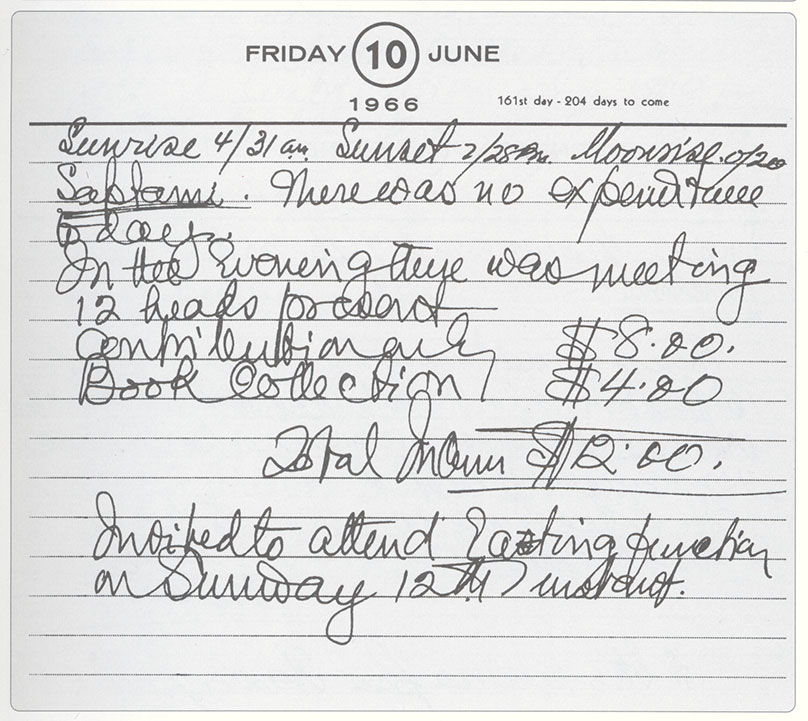 FRIDAY 10 JUNE
1966
161st day - 204 days to come
Sunrise 4/31 am Sunset 7/28 Pm. Moonrise. 0/20
Saptami. There was no expenditure
today.
In the Evening there was meeting
12 heads present
Contribution only $8.00.
Book Collection $4.00
Total Incom $12.00.
Invited to attend Eating function
on Sunday 12th instant.